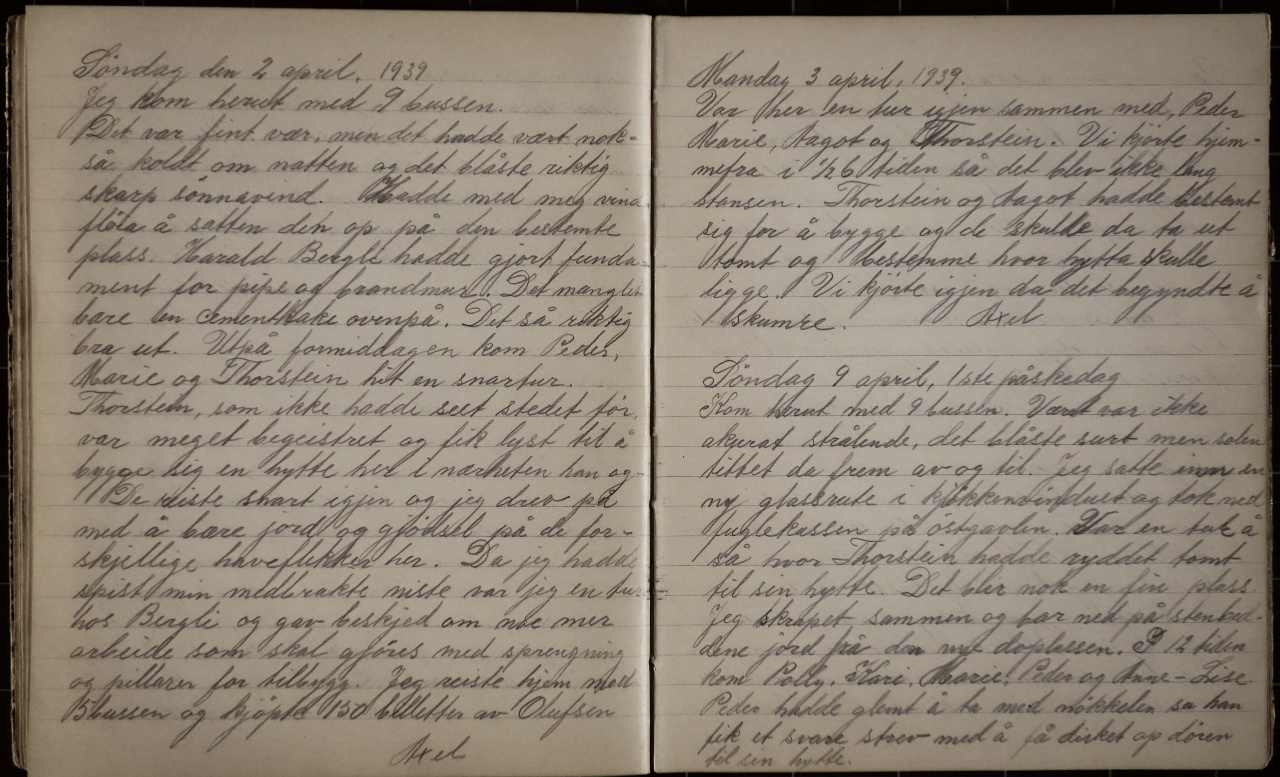 Söndag den 2 april, 1939
Jeg kom herut med 9 bussen.
Det var fint vær, men det hadde vært nok-
så koldt om natten og det blåste riktig
skarp sönnavind. Hadde med meg vina
flöia å satten den op på den bestemte
plass. Harald Bergli hadde gjort funda
ment for pipe og brandmur. Det manglet
bare en cementkake ovenpå. Det så riktig
bra ut. Utpå formiddagen kom Peder,
Marie og Thorstein hit en snartur.
Thorstein, som ikke hadde seet stedet för,
var meget begeistret og fik lyst til å
bygge sig en hytte her i nærheten han og-
De reiste snart igjen og jeg drev på
med å bære jord og gjödsel på de for-
skjellige haveflekker her. Da jeg hadde
spist min medbrakte niste var jeg en tur
hos Bergli og gav beskjed om noe mer
arbeide som skal gjöres med sprengning
og pillarer for tilbygg. Jeg reiste hjem med
5 bussen og kjöpte 150 billetter av Olufsen
Axel
Mandag 3 april, 1939.
Var her en tur igjen sammen med, Peder
Marie, Aagot og Thorstein. Vi kjörte hjem-
mefra i ½6 tiden så det blev ikke lang
stansen. Thorstein og Aagot hadde bestemt
sig for å bygge og de skulle da ta ut
tomt og bestemme hvor hytta skulle
ligge. Vi kjörte igjen da det begyndte å
skumre. Axel
Söndag 9 april, 1ste påskedag
Kom herut med 9 bussen. Været var ikke
akurat strålende, det blåste surt men solen
tittet da frem av og til. Jeg satte inn en
ny glassrute i kjökkenvinduet og tok ned
fuglekassen på östgavlen. Var en tur å
så hvor Thorstein hadde ryddet tomt
til sin hytte. Det blir nok en fin plass
Jeg skrapet sammen og bar ned på stenbed-
dene jord fra den nye doplassen. I 12 tiden
kom Polly, Kari, Marie, Peder og Anne-Lise
Peder hadde glemt å ta med nökkelen så han
fik et svare strev med å få dirket op dören
til sin hytte.